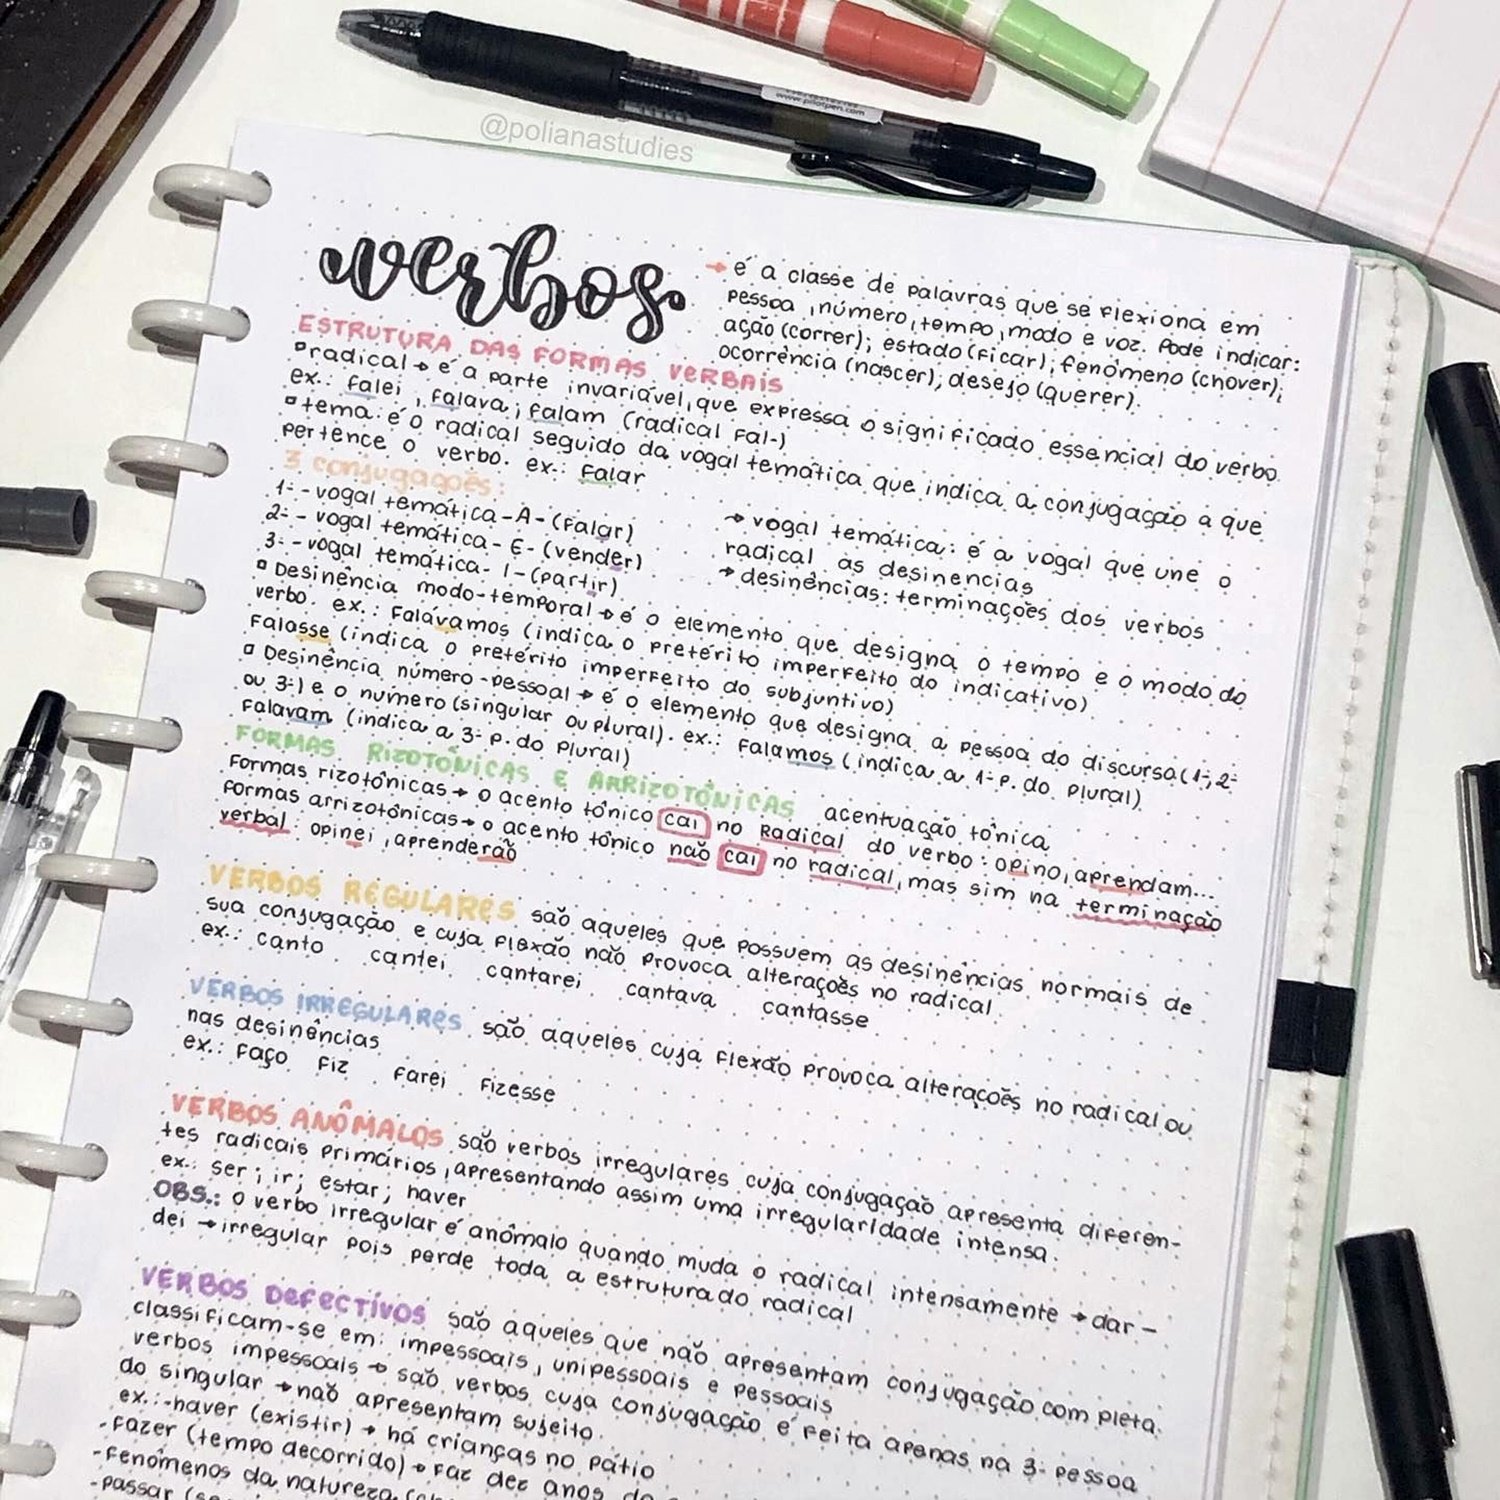 www.pilotpen.com
@polianastudies
verbos
→ é a classe de palavras que se flexiona em
pessoa, número, tempo, modo e voz. Pode indicar:
ação (correr); estado (ficar); fenômeno (chover);
ocorrência (nascer); desejo (querer).
ESTRUTURA DAS FORMAS VERBAIS
▫radical → é a parte invariável, que expressa o significado essencial do verbo
ex.: falei, falava; falam (radical fal-)
▫tema: é o radical seguido da vogal temática que indica a conjugação a que
pertence o verbo. ex.: falar
3 conjugações:
1ª - vogal temática - A - (falar)
2ª - vogal temática - E - (vender)
3ª - vogal temática - I - (partir)
→ vogal temática: é a vogal que une o
radical as desinencias
→ desinências: terminações dos verbos
▫ Desinência modo-temporal → é o elemento que designa o tempo e o modo do
verbo. ex.: Falávamos (indica o pretérito imperfeito do indicativo)
Falasse (indica o pretérito imperfeito do subjuntivo)
▫ Desinência número-pessoal → é o elemento que designa a pessoa do discurso (1ª, 2ª
ou 3ª) e o número (singular ou plural). ex.: Falamos (indica a 1ª p. do plural)
falavam (indica a 3ª p. do plural)
FORMAS RIZOTÔNICAS E ARRIZOTÔNICAS acentuação tônica
Formas rizotônicas → o acento tônico cai no Radical do verbo: opino, aprendam...
formas arrizotônicas → o acento tônico não cai no radical, mas sim na terminação
verbal: opinei, aprenderão
VERBOS REGULARES são aqueles que possuem as desinências normais de
sua conjugação e cuja flexão não provoca alterações no radical.
ex.: canto cantei cantarei cantava cantasse
VERBOS IRREGULARES são aqueles cuja flexão provoca alterações no radical ou
nas desinências
ex.: Faço Fiz Farei Fizesse
VERBOS ANÔMALOS são verbos irregulares cuja conjugação apresenta diferen-
tes radicais primários, apresentando assim uma irregularidade intensa.
ex.: ser; ir; estar; haver
OBS.: o verbo irregular é anômalo quando muda o radical intensamente → dar -
dei → irregular pois perde toda a estrutura do radical
VERBOS DEFECTIVOS são aqueles que não apresentam conjugação completa.
classificam-se em: impessoais, unipessoais e pessoais
verbos impessoais → são verbos cuja conjugação é feita apenas na 3ª pessoa
do singular → não apresentam sujeito.
ex.: -haver (existir) → há crianças no pátio
-fazer (tempo decorrido) → Faz dez anos
-fenômenos da natureza
-passar